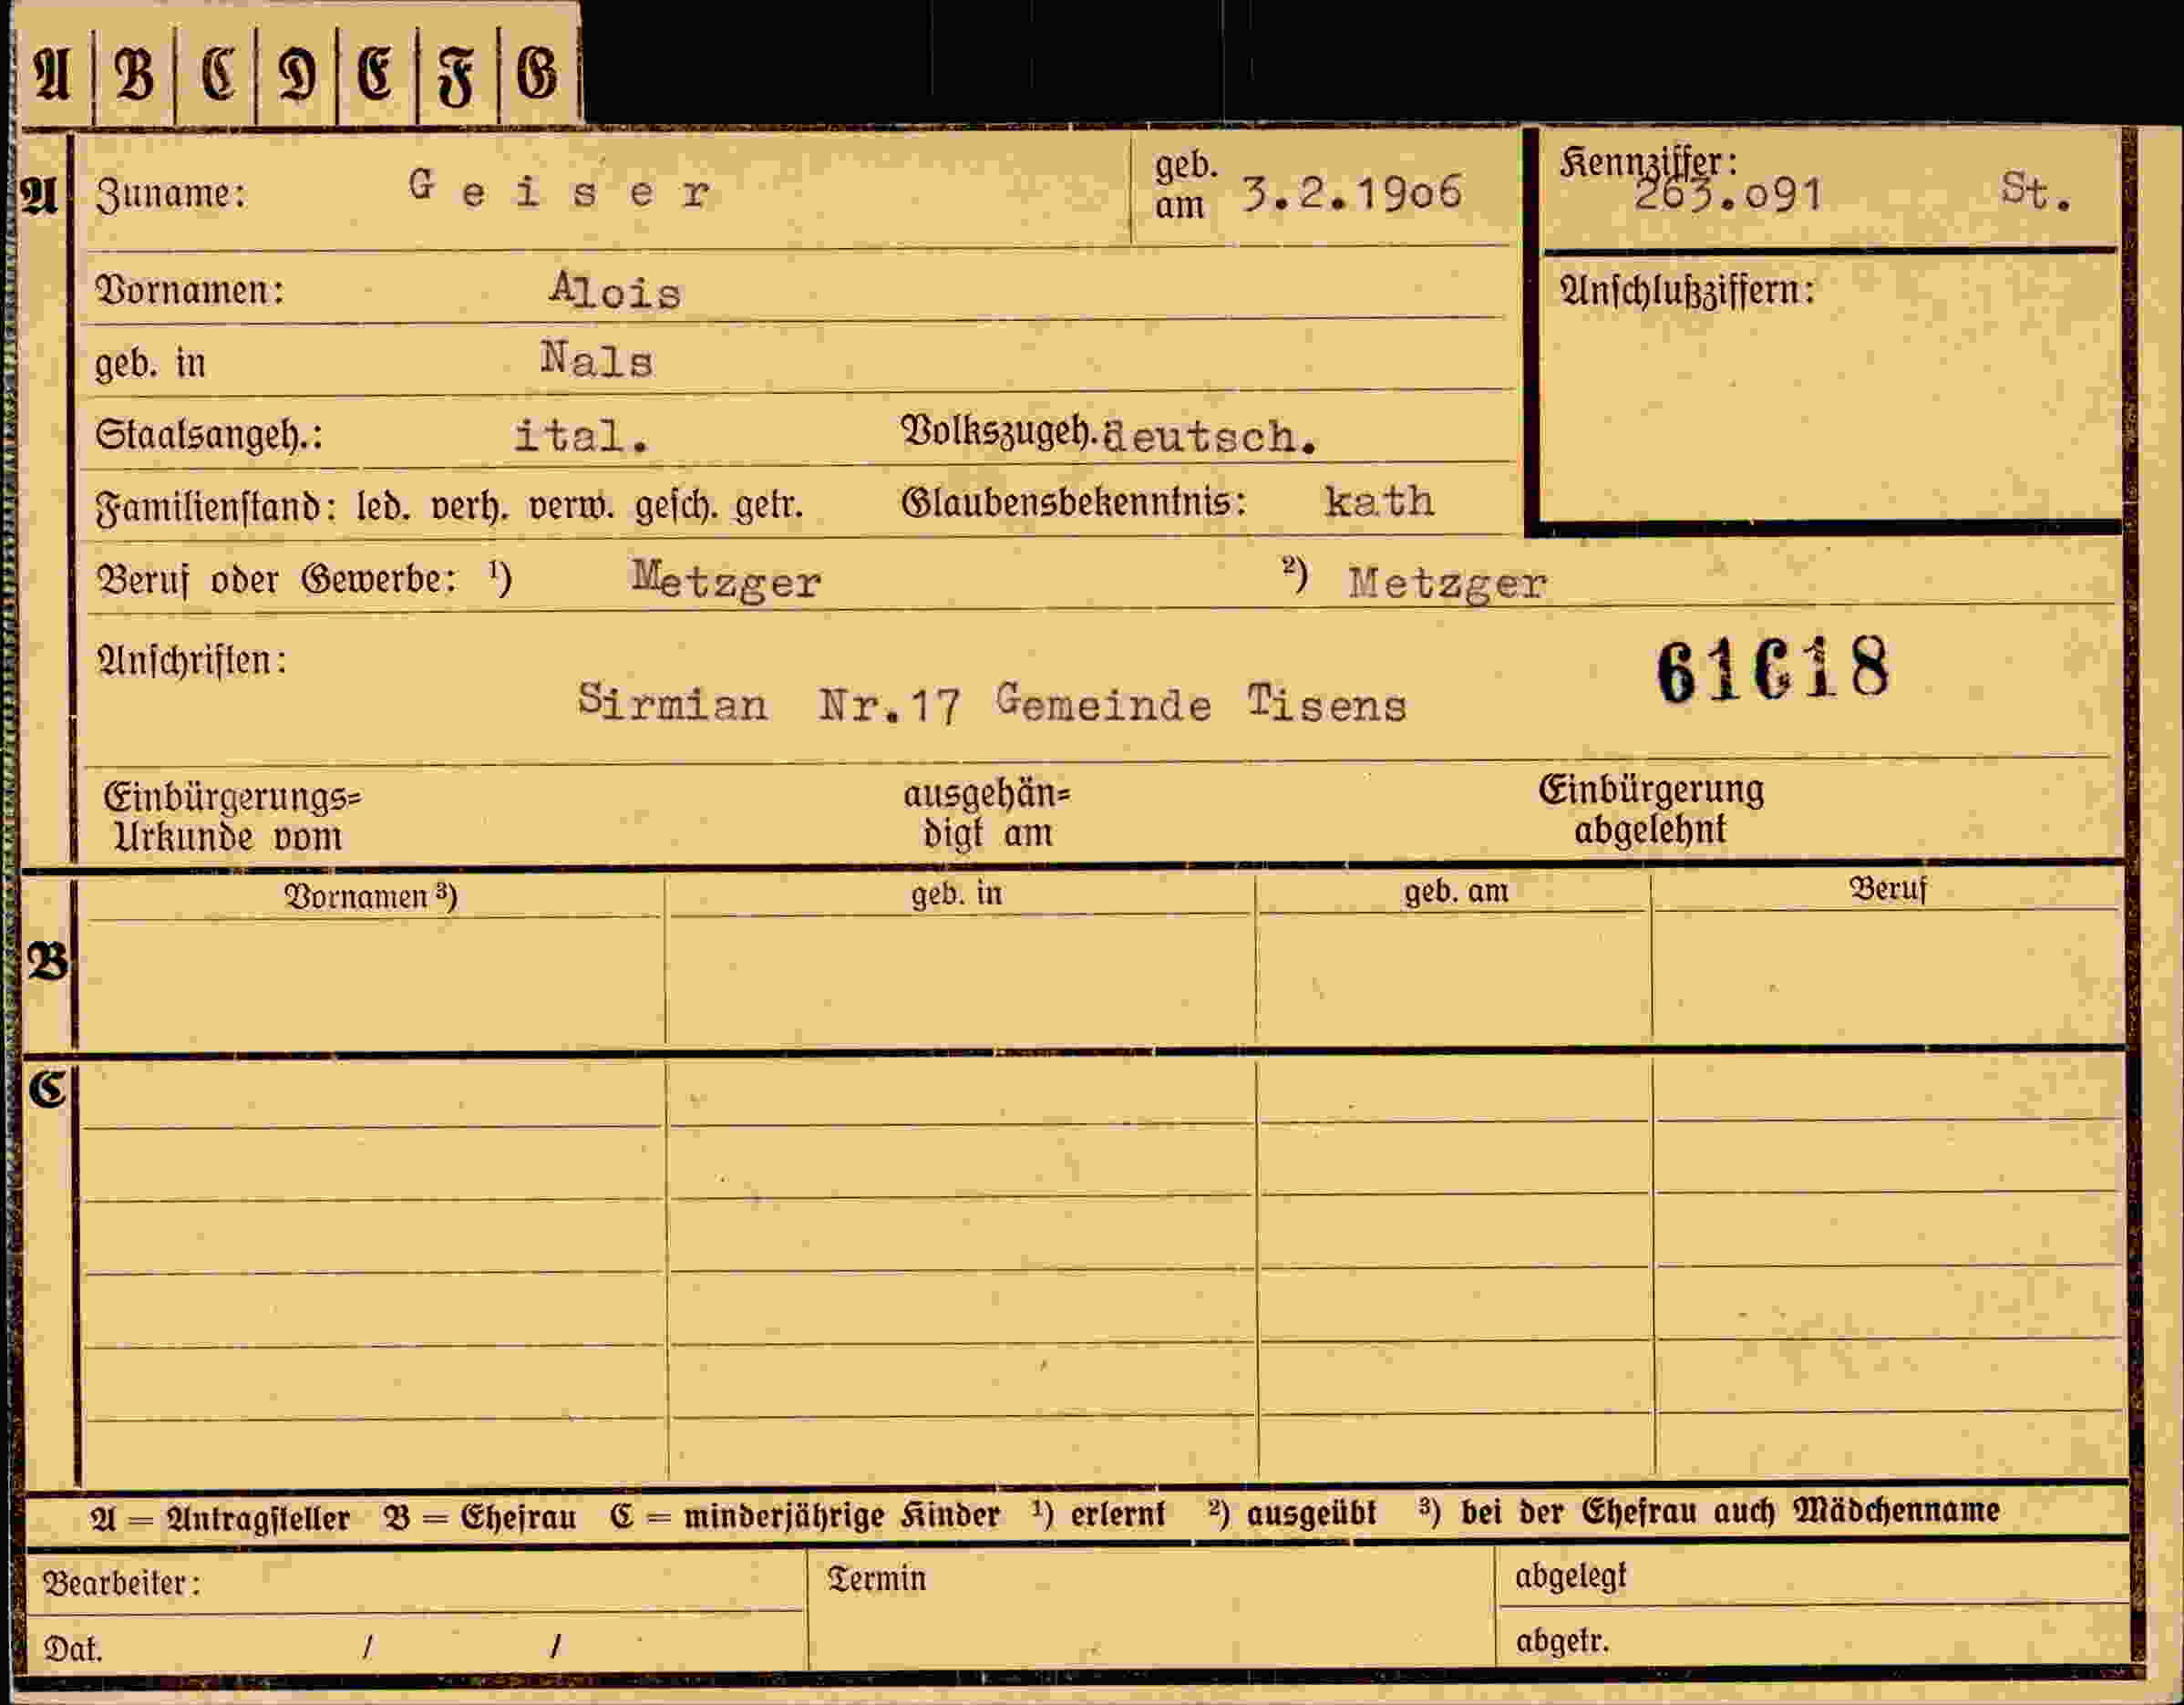 A B C D E F G
A Zuname: Geiser geb. am 3.2.1906 Kennziffer: 263.091 St.
Vornamen: Alois Anschlußziffern:
geb. in Nals
Staatsangeh.: ital. Volkszugeh. deutsch.
Familienstand: led. verh. verw. gesch. getr. Glaubensbekenntnis: kath
Beruf oder Gewerbe: ¹) Metzger ²) Metzger
Anschriften: 61618
Sirmian Nr.17 Gemeinde Tisens
Einbürgerungs= ausgehän= Einbürgerung
Urkunde vom digt am abgelehnt
Vornamen ³) geb. in geb. am Beruf
B
C
A = Antragsteller B = Ehefrau C = minderjährige Kinder ¹) erlernt ²) ausgeübt ³) bei der Ehefrau auch Mädchenname
Bearbeiter: Termin abgelegt
Dat. / / abgetr.